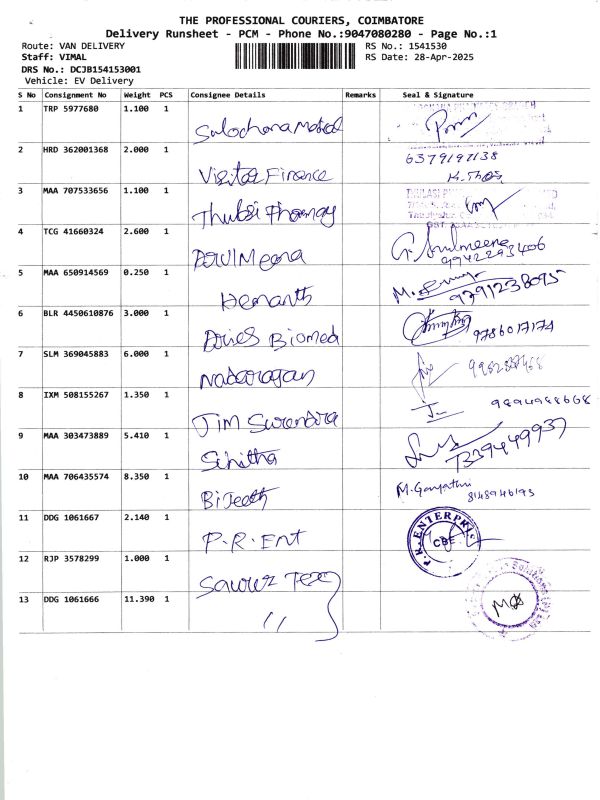 THE PROFESSIONAL COURIERS, COIMBATORE
Delivery Runsheet - PCM - Phone No.:9047080280 - Page No.:1
Route: VAN DELIVERY RS No.: 1541530
Staff: VIMAL RS Date: 28-Apr-2025
DRS No.: DCJB154153001
Vehicle: EV Delivery
S No Consignment No Weight PCS Consignee Details Remarks Seal & Signature
1 TRP 5977680 1.100 1
2 HRD 362001368 2.000 1 6379197138
Finance
3 MAA 707533656 1.100 1
4 TCG 41660324 2.600 1
9942293406
5 MAA 650914569 0.250 1
Hemanth 9791238095
6 BLR 4450610876 3.000 1
Aries Biomed 9786017174
7 SLM 369045883 6.000 1
Natarajan
8 IXM 508155267 1.350 1 9894988668
Jim Surendra
9 MAA 303473889 5.410 1
7339449937
10 MAA 706435574 8.350 1 M. Gayathri
8148946193
11 DDG 1061667 2.140 1
P.R. Ent P.R. ENTERPRIS CBE
12 RJP 3578299 1.000 1
Tex
13 DDG 1061666 11.390 1